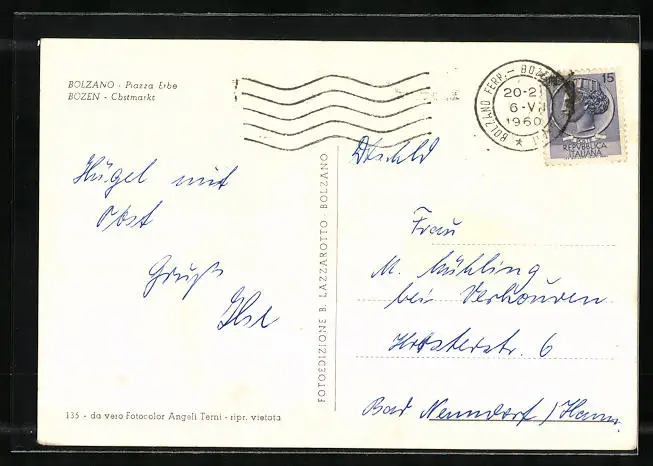 BOLZANO - Piazza Erbe
BOZEN - Obstmarkt
BOLZANO FERR. - BOZEN
20-2
6-VI
1960
15
REPVBBLICA
ITALIANA
Hügel mit
Obst
Grüße
Ilse
FOTOEDIZIONE B. LAZZAROTTO - BOLZANO
Dtschld
Frau
M. Mühling
bei Verhouven
str. 6
Bad Nenndorf / Hann.
135 - da vero Fotocolor Angeli Terni - ripr. vietata